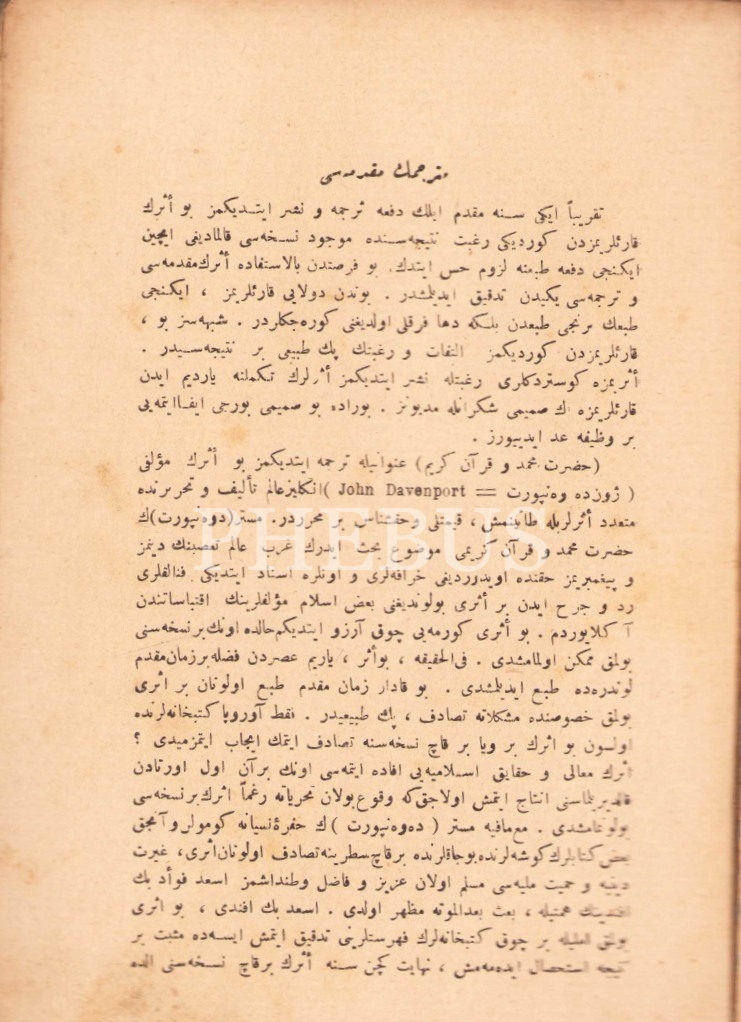 مترجمك مقدمه‌سی
تقریباً ایكی سنه مقدم ایلك دفعه ترجمه و نشر ایتدیكمز بو أثرك
قارئلریمزدن كوردیكی رغبت نتیجه‌سنده موجود نسخه‌سی قالمادیغی ایچین
ایكنجی دفعه طبعنه لزوم حس ایتدك. بو فرصتدن بالاستفاده أثرك مقدمه‌سی
و ترجمه‌سی یكیدن تدقیق ایدیلمشدر . بوندن دولایی قارئلریمز ، ایكنجی
طبعك برنجی طبعدن بلكه دها فرقلی اولدیغنی كوره‌جكلردر . شبهه‌سز بو ،
قارئلریمزدن كوردیكمز التفات و رغبتك پك طبیعی بر نتیجه‌سیدر .
أثریمزه كوستردكلری رغبتله نشر ایتدیكمز أثرلرك تكملنه یاردیم ایدن
قارئلریمزه اك صمیمی شكرانله مدیونز . بوراده بو صمیمی بورجی ایفا ایتمه‌یی
بر وظیفه عد ایدییورز .
(حضرت محمد و قرآن كریم) عنوانیله ترجمه ایتدیكمز بو أثرك مؤلفی
( ژون ده وه‌نپورت == John Davenport ) انكلیز عالم تألیف و تحریرنده
متعدد أثرلریله طانینمش ، قیمتلی و حقشناس بر محرردر. مستر (دوه‌نپورت) ك
حضرت محمد و قرآن كریمی موضوع بحث ایدرك غرب عالم تعصبنك دینمز
و پیغمبریمز حقنده اویدوردیغی خرافه‌لری و اونلره اسناد ایتدیكی فنالقلری
رد و جرح ایدن بر أثری بولوندیغنی بعض اسلام مؤلفلرینك اقتباساتندن
آكلایوردم . بو أثری كورمه‌یی چوق آرزو ایتدیكم حالده اونك بر نسخه‌سنی
بولمق ممكن اولمامشدی . فی الحقیقه ، بو أثر ، یاریم عصردن فضله بر زمان مقدم
لوندره‌ده طبع ایدیلمشدی . بو قادار زمان مقدم طبع اولونان بر أثری
بولمق خصوصنده مشكلاته تصادف ، پك طبیعیدر . فقط آوروپا كتبخانه‌لرنده
اولسون بو أثرك بر ویا بر قاچ نسخه‌سنه تصادف ایتمك ایجاب ایتمزمیدی ؟
أثرك معالی و حقایق اسلامیه‌یی افاده ایتمه‌سی اونك بر آن اول اورتادن
قالدیریلماسنی انتاج ایتمش اولاجق كه وقوع بولان تحریاته رغماً أثرك بر نسخه‌سی
بولونمامشدی . مع مافیه مستر ( ده‌وه‌نپورت ) ك حفرۀ نسیانه كومولر و آنجق
بعض كتابلرك كوشه‌لرنده بوجاقلرنده بر قاچ سطرینه تصادف اولونان أثری، غیرت
دینیه و حمیت ملیه‌سی مسلم اولان عزیز و فاضل وطنداشمز اسعد فوأد بك
افندینك همتیله ، بعث بعدالموته مظهر اولدی . اسعد بك افندی ، بو أثری
بولمق املیله بر چوق كتبخانه‌لرك فهرستلرینی تدقیق ایتمش ایسه‌ده مثبت بر
نتیجه استحصال ایده‌مه‌مش ، نهایت كچن سنه أثرك بر قاچ نسخه‌سنی الده
THEBUS